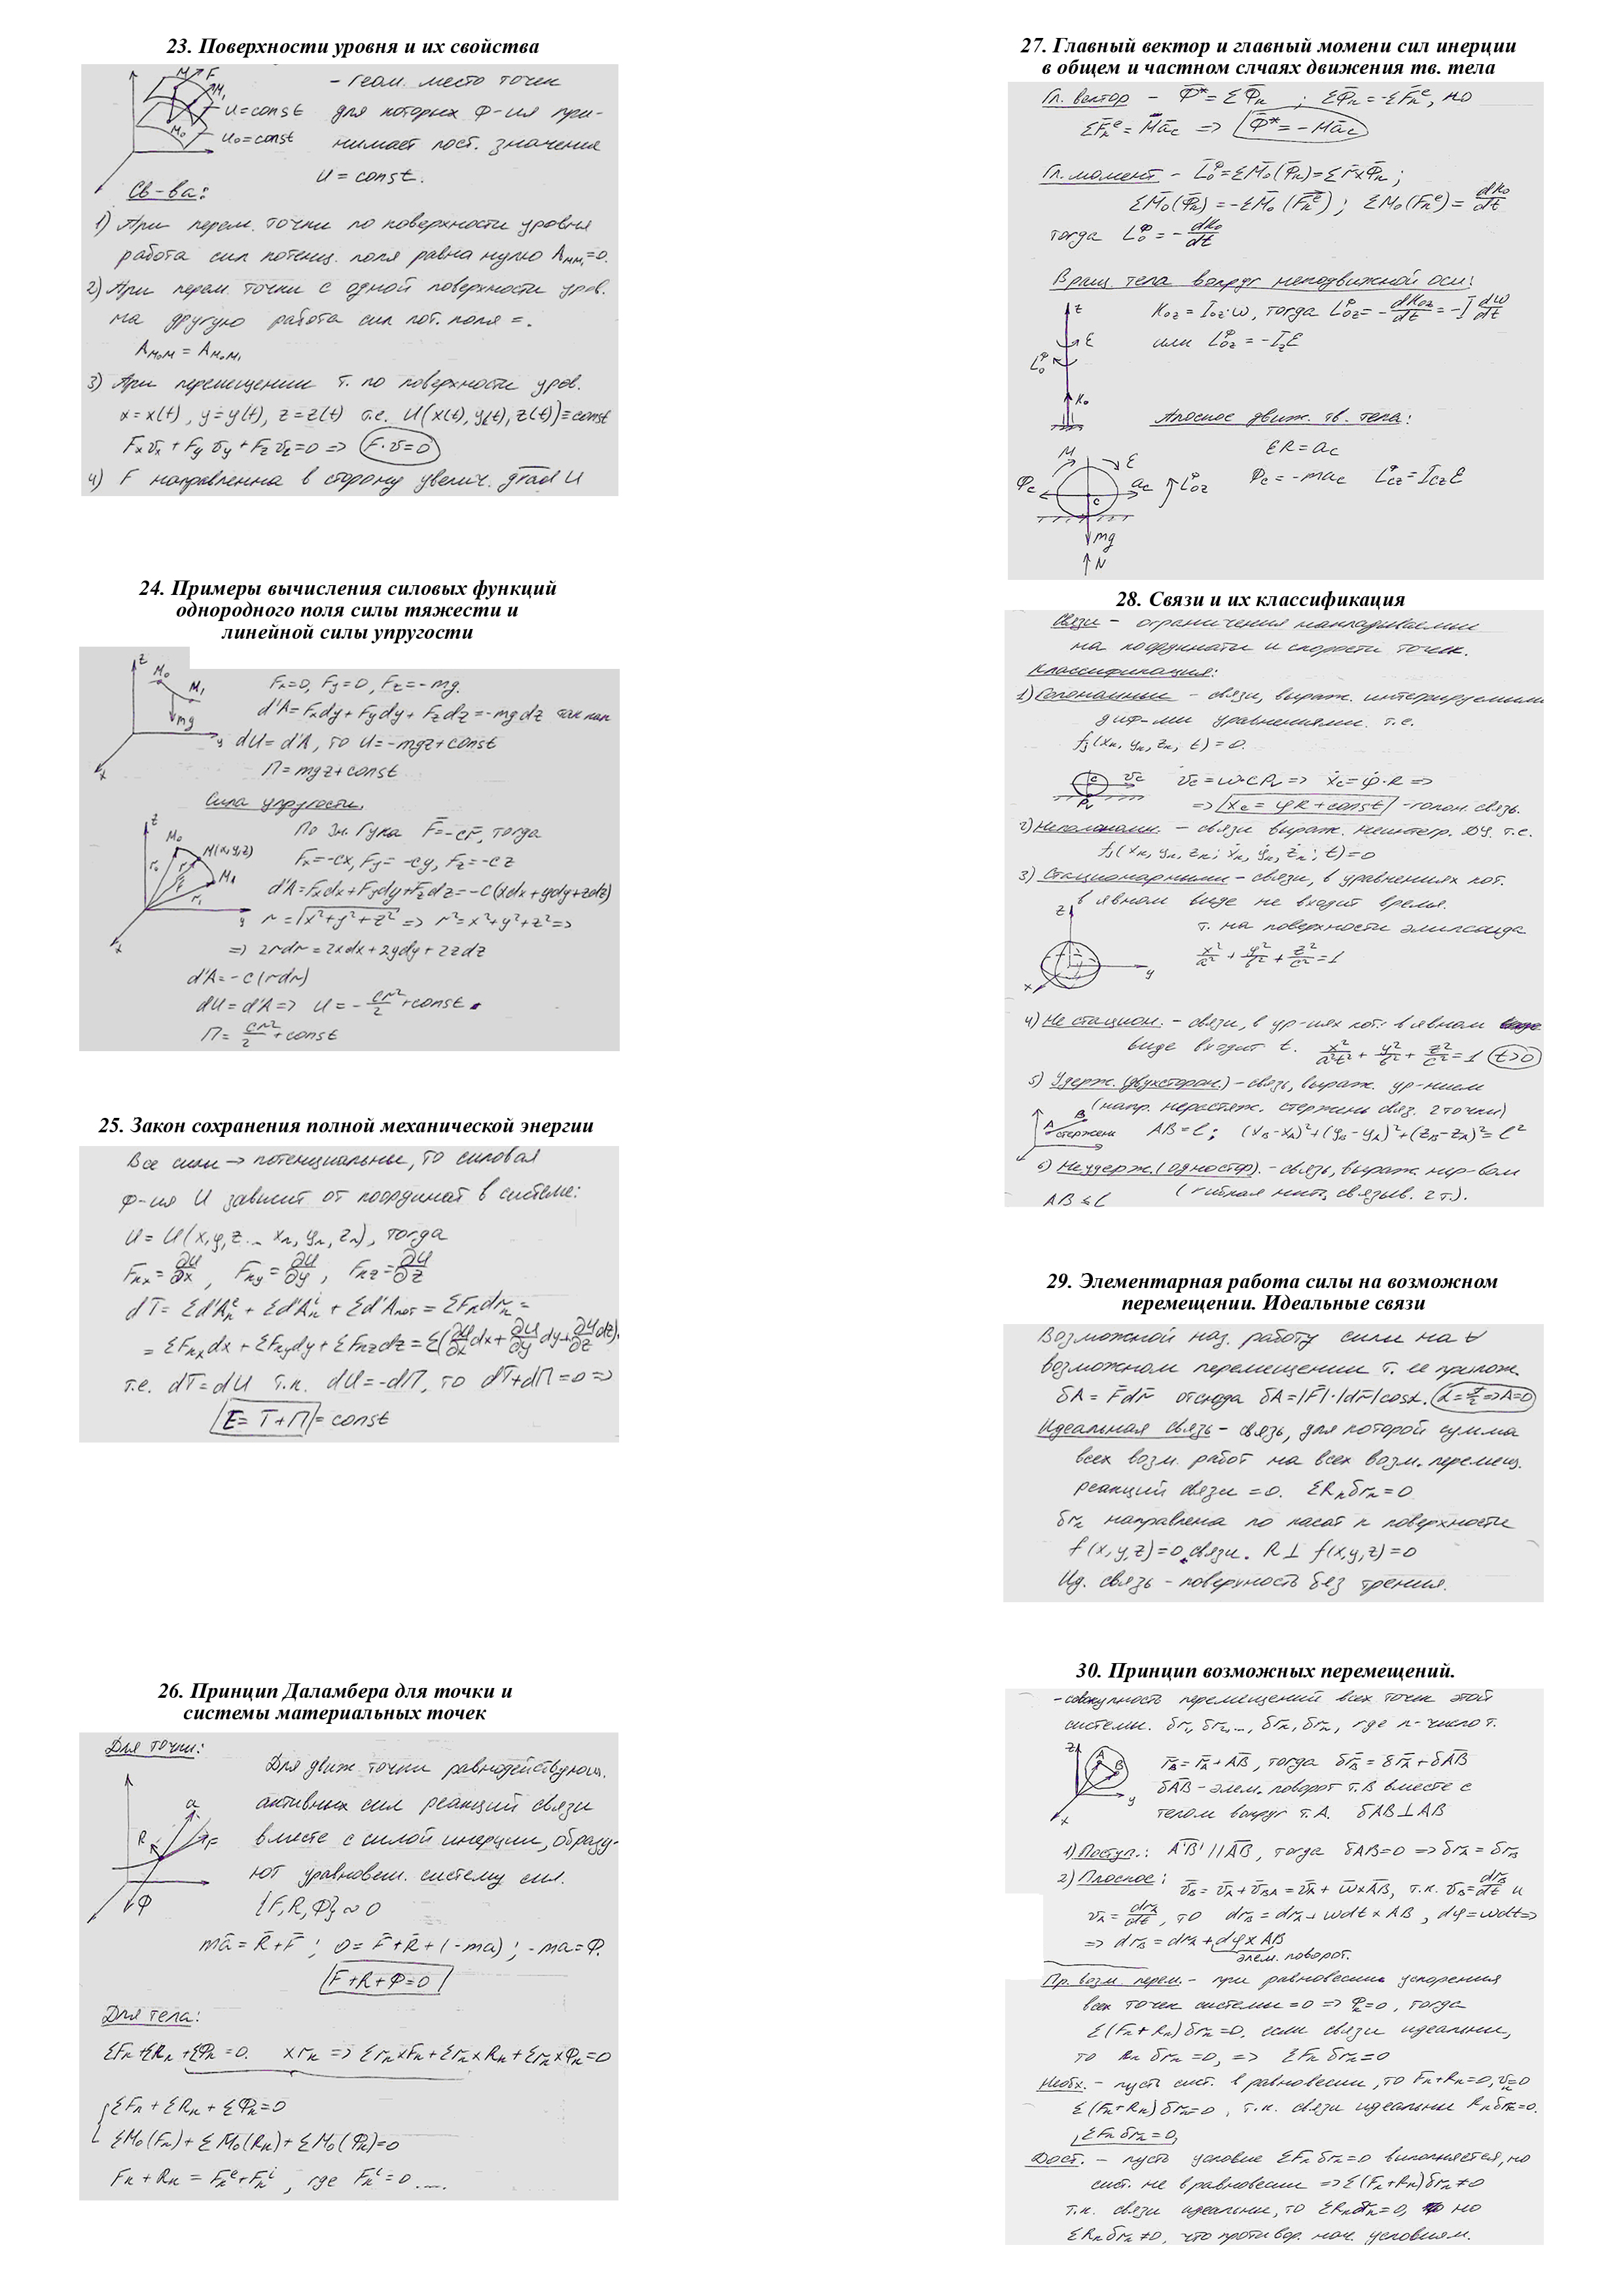 23. Поверхности уровня и их свойства
– геом. место точек
U=const для которых ф-ия при-
U₀=const нимает пост. значения
U = const.
Св-ва:
1) При перем. точки по поверхности уровня
работа сил потенц. поля равна нулю A_MM₁=0.
2) При перем. точки с одной поверхности уров.
на другую работа сил пот. поля =.
A_M₀M = A_M₀M₁
3) При перемещении т. по поверхности уров.
x=x(t), y=y(t), z=z(t) т.е. U(x(t), y(t), z(t))=const
Fxυx + Fyυy + Fzυz=0 => F·υ=0
4) F направленна в сторону увелич. grad U
24. Примеры вычисления силовых функций
однородного поля силы тяжести и
линейной силы упругости
Fx=0, Fy=0, Fz=-mg.
d'A=Fxdy+Fydy+Fzdz=-mgdz так как
dU=d'A, то U=-mgz+const
П=mgz+const
Сила упругости.
По Зн. Гука F̄=-cr̄, тогда
Fx=-cx, Fy=-cy, Fz=-cz
d'A=Fxdx+Fydy+Fzdz=-c(xdx+ydy+zdz)
r=√x²+y²+z² => r²=x²+y²+z² =>
=> 2rdr=2xdx+2ydy+2zdz
d'A=-c(rdr)
dU=d'A => U=-cr²/2+const
П=cr²/2+const
25. Закон сохранения полной механической энергии
Все силы → потенциальны, то силовая
ф-ия U зависит от координат в системе:
U=U(x,y,z... xn, yn, zn), тогда
Fкx=∂U/∂x, Fкy=∂U/∂y, Fкz=∂U/∂z
dT=Σd'Aкᵉ+Σd'Aкⁱ+Σd'Aпот=ΣFкdrк=
=ΣFкxdx+ΣFкydy+ΣFкzdz=Σ(∂U/∂x dx+∂U/∂y dy+∂U/∂z dz).
т.е. dT=dU т.к. dU=-dП, то dT+dП=0 =>
E=T+П=const
26. Принцип Даламбера для точки и
системы материальных точек
Для точки:
Для движ точки равнодействующ.
активных сил реакций связи
вместе с силой инерции, образу-
ют уравновеш. систему сил.
{F,R,Ф}~0
mā=R̄+F̄; 0=F̄+R̄+(-ma); -ma=Ф.
F+R+Ф=0
Для тела:
ΣFк+ΣRк+ΣФк=0. ×rк => Σrк×Fк+Σrк×Rк+Σrк×Фк=0
ΣFк+ΣRк+ΣФк=0
ΣM₀(Fк)+ΣM₀(Rк)+ΣM₀(Фк)=0
Fк+Rк=Fкᵉ+Fкⁱ, где Fкⁱ=0 ....
27. Главный вектор и главный момени сил инерции
в общем и частном слчаях движения тв. тела
Гл. вектор – Ф̄*=ΣФ̄к; ΣФ̄к=-ΣF̄кᵉ, но
ΣF̄кᵉ=Māc => Ф̄*=-Māc
Гл. момент – L̄₀ᶲ=ΣM̄₀(Ф̄к)=Σr̄×Ф̄к;
ΣM̄₀(Ф̄к)=-ΣM̄₀(F̄кᵉ); ΣM₀(Fкᵉ)=dK₀/dt
тогда L₀ᶲ=-dK₀/dt
Вращ тела вокруг неподвижной оси:
K₀z=I₀z·ω, тогда L₀zᶲ=-dK₀z/dt=-I dω/dt
или L₀zᶲ=-Izε
Плоское движ. тв. тела:
εR=ac
Фc=-mac Lczᶲ=Iczε
28. Связи и их классификация
Связи – ограничения накладываемыи
на координаты и скорости точек.
Классификация:
1) Голономные – связи, выраж. интегрируемыми
диф-ми уравнениями. т.е.
fj(xк, yк, zк; t)=0.
υc=ω·cPv => ẋc=φ̇·R =>
=> xc=φR+const – голон. связь.
2) Неголоном. – связи выраж. неинтегр. ДУ. т.е.
fj(xк, yк, zк; ẋк, ẏк, żк; t)=0
3) Стационарными – связи, в уравнениях кот.
в явном виде не входит время.
т. на поверхности элипсоида
x²/a²+y²/b²+z²/c²=1
4) Не стацион. – связи, в ур-иях кот. в явном
виде входит t. x²/a²t²+y²/b²+z²/c²=1 t>0
5) Удерж. (двухсторон.) – связь, выраж. ур-нием
(напр. нерастяж. стержень связ. 2 точки)
стержень AB=l; (xB-xA)²+(yB-yA)²+(zB-zA)²=l²
6) Неудерж. (одностор). – связь, выраж. нер-вом
AB≤l (гибкая нить, связыв. 2 т.).
29. Элементарная работа силы на возможном
перемещении. Идеальные связи
Возможной наз. работу силы на ∀
возможном перемещении т. ее прилож.
δA=F̄dr̄ отсюда δA=|F̄|·|dr̄|cosα. α=π/2=>A=0
Идеальная связь – связь, для которой сумма
всех возм. работ на всех возм. перемещ.
реакций связи =0. ΣRкδrк=0
δrк направлена по касат к поверхности
f(x,y,z)=0 связи. R⊥ f(x,y,z)=0
Ид. связь – поверхность без трения.
30. Принцип возможных перемещений.
– совокупность перемещений всех точек этой
системы. δr₁, δr₂,..., δrк, δrn, где n-число т.
r̄B=r̄A+A̅B̅, тогда δr̄B=δr̄A+δA̅B̅
δA̅B̅ – элем. поворот т. B вместе с
телом вокруг т. A. δAB⊥AB
1) Поступ.: A̅'B̅'//A̅B̅, тогда δAB=0 => δrA=δrB
2) Плоское: ῡB=ῡA+ῡBA=ῡA+ω̄×A̅B̅, т.к. υB=drB/dt и
υA=drA/dt, то drB=drA+ωdt×AB, dφ=ωdt=>
=> drB=drA+dφ×AB
элем. поворот.
Пр. возм. перем. – при равновесии ускорения
всех точек системы=0 => Фк=0, тогда
Σ(Fк+Rк)δrк=0. если связи идеальны,
то Rкδrк=0, => ΣFкδrк=0
Необх. – пусть сист. в равновесии, то Fк+Rк=0, υк=0
Σ(Fк+Rк)δrк=0, т.к. связи идеальны Rкδrк=0.
ΣFкδrк=0,
Дост. – пусть условие ΣFкδrк=0 выполняется, но
сист. не в равновесии => Σ(Fк+Rк)δrк≠0
т.к. связи идеальны, то ΣRкδrк=0, но
ΣRкδrк≠0, что противор. нач. условиям.